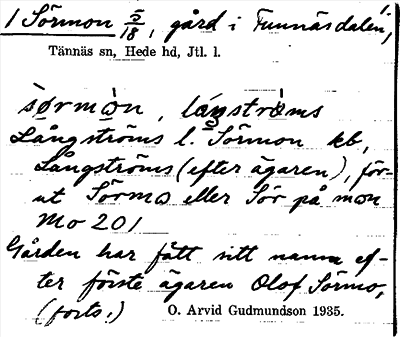 1 Sörmon 5/18, gård i Funnäsdalen,
Tännäs sn, Hede hd, Jtl. l.
sørmòn, låŋstròms
Långströms l. Sörmon kb,
Långströms (efter ägaren), för-
ut Sörmo eller Sör på mon
Mo 201
Gården har fått sitt namn ef-
ter förste ägaren Olof Sörmo,
(forts.)
O. Arvid Gudmundson 1935.